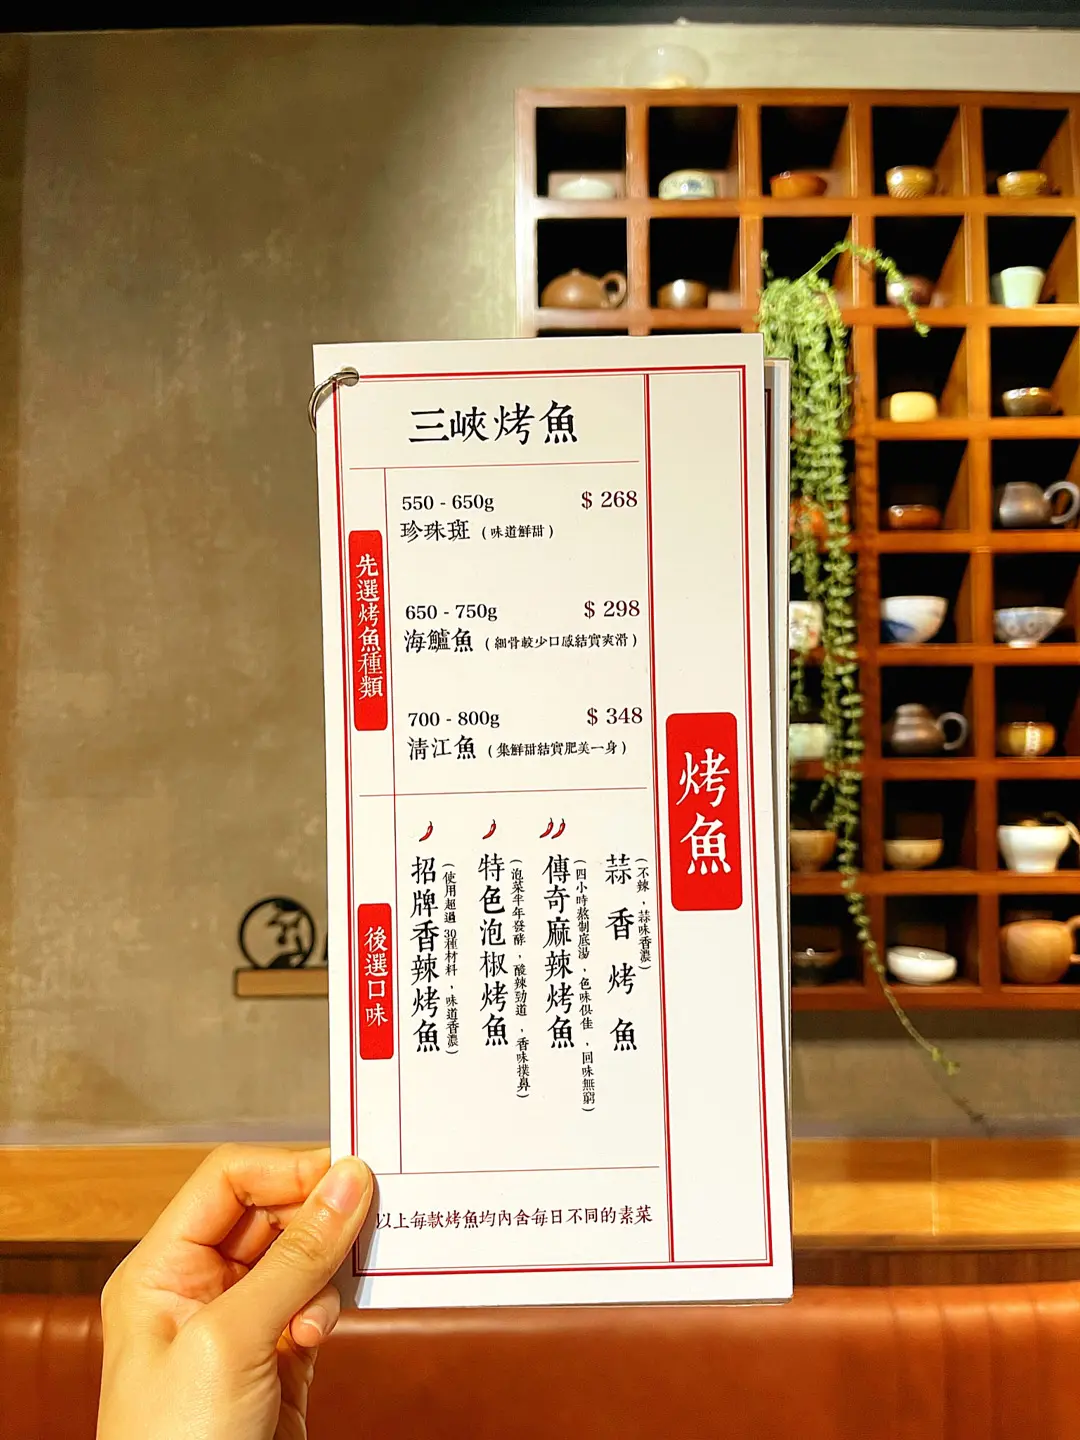 三峽烤魚
先選烤魚種類
550 - 650g $ 268
珍珠斑 (味道鮮甜)
650 - 750g $ 298
海鱸魚 (細骨較少口感結實爽滑)
700 - 800g $ 348
清江魚 (集鮮甜結實肥美一身)
後選口味
蒜香烤魚
(不辣，蒜味香濃)
傳奇麻辣烤魚
(四小時熬制底湯，色味俱佳，回味無窮)
特色泡椒烤魚
(泡菜半年發酵，酸辣勁道，香味撲鼻)
招牌香辣烤魚
(使用超過30種材料，味道香濃)
以上每款烤魚均內含每日不同的素菜
烤魚